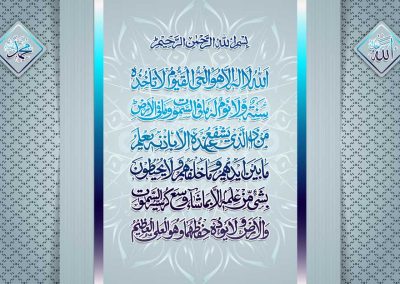 محمد
الله
بسم الله الرحمن الرحيم
الله لا اله الا هو الحي القيوم لا تاخذه
سنة ولا نوم له ما في السموات وما في الارض
من ذا الذي يشفع عنده الا باذنه يعلم
ما بين ايديهم وما خلفهم ولا يحيطون
بشيء من علمه الا بما شاء وسع كرسيه السموات
والارض ولا يوده حفظهما وهو العلي العظيم